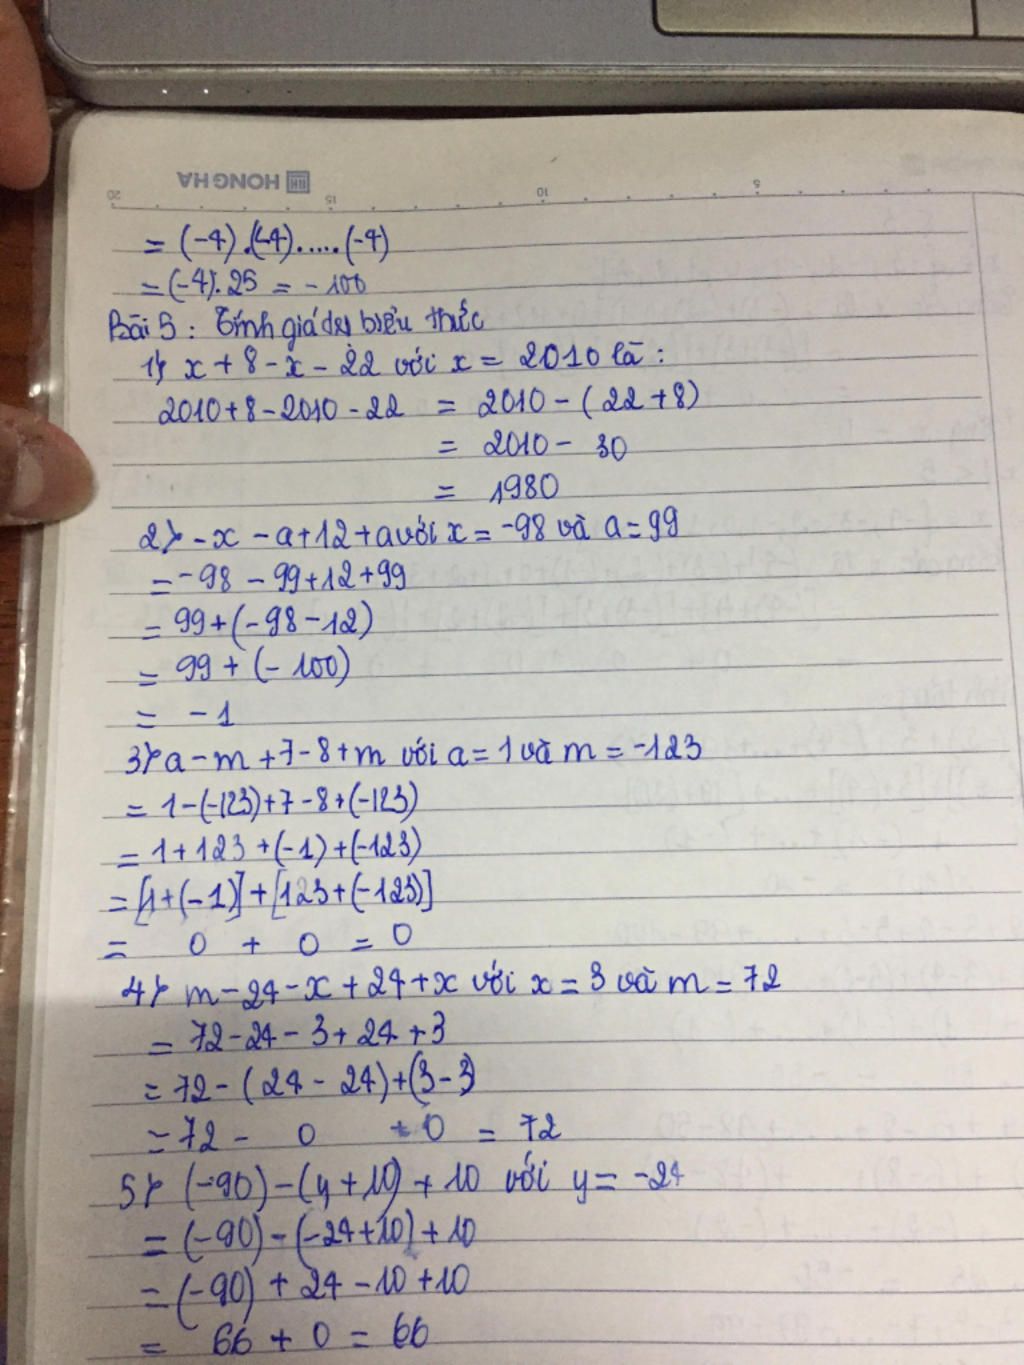 HONG HA
20 15 10 5
= (-4).(-4).....(-4)
= (-4).25 = -100
Bài 5: Tính giá trị biểu thức
1) x + 8 - x - 22 với x = 2010 là:
2010+8-2010-22 = 2010 - (22+8)
= 2010 - 30
= 1980
2) -x - a + 12 + a với x = -98 và a = 99
= -98 - 99 + 12 + 99
= 99 + (-98 - 12)
= 99 + (-100)
= -1
3) a - m + 7 - 8 + m với a = 1 và m = -123
= 1 - (-123) + 7 - 8 + (-123)
= 1 + 123 + (-1) + (-123)
= [1 + (-1)] + [123 + (-123)]
= 0 + 0 = 0
4) m - 24 - x + 24 + x với x = 3 và m = 72
= 72 - 24 - 3 + 24 + 3
= 72 - (24 - 24) + (3 - 3)
= 72 - 0 + 0 = 72
5) (-90) - (y + 10) + 10 với y = -24
= (-90) - (-24 + 10) + 10
= (-90) + 24 - 10 + 10
= 66 + 0 = 66